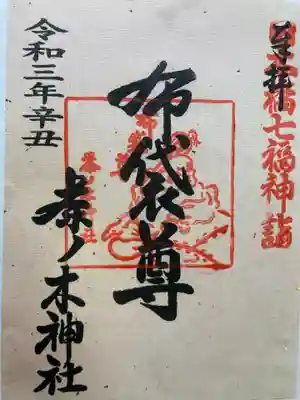 奉拝
七福神詣
布袋尊
令和三年辛丑
ノ木神社